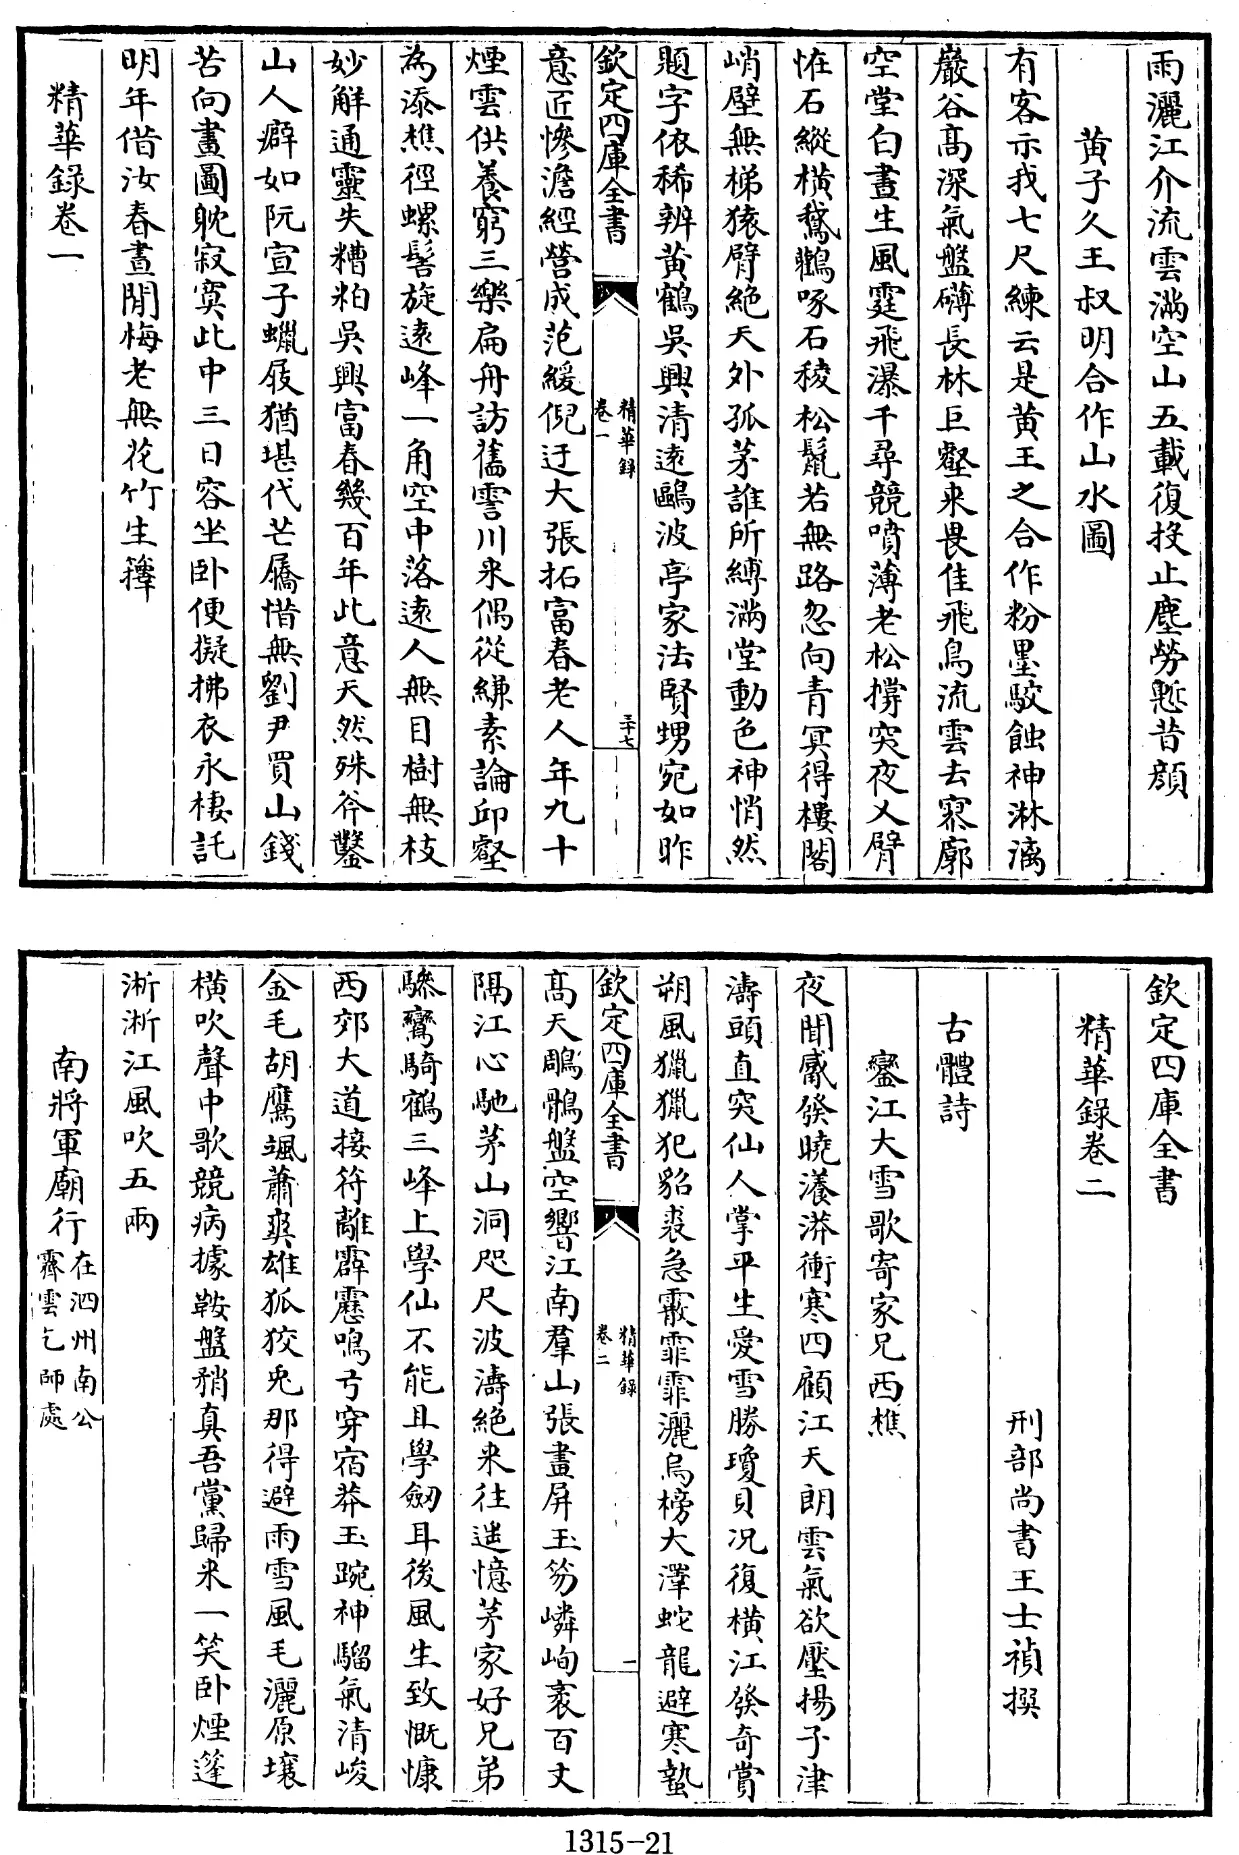 雨灑江介流雲滿空山五載復投止塵勞慙昔顔
黄子久王叔明合作山水圖
有客示我七尺練云是黄王之合作粉墨駮蝕神淋漓
巖谷髙深氣盤礴長林巨壑来畏佳飛鳥流雲去寥廓
空堂白晝生風霆飛瀑千尋競噴薄老松撐突夜乂臂
恠石縱横鵞鸛啄石稜松鬛若無路忽向青冥得樓閣
峭壁無梯猿臂絶天外孤茅誰所縛滿堂動色神悄然
題字依稀辨黄鶴吳興清逺鷗波亭家法賢甥宛如昨
欽定四庫全書
精華録
卷一
三十七
意匠慘澹經營成范緩倪迂大張拓富春老人年九十
煙雲供養窮三樂扁舟訪舊霅川来偶從縑素論邱壑
為添樵徑螺髻旋逺峰一角空中落逺人無目樹無枝
妙解通靈失糟粕吳興富春幾百年此意天然殊斧鑿
山人癖如阮宣子蠟屐猶堪代芒屩惜無劉尹買山錢
苦向畫圖躭寂寞此中三日容坐卧便擬拂衣永棲託
明年借汝春晝閒梅老無花竹生籜
精華録卷一
欽定四庫全書
精華録卷二
刑部尚書王士禎撰
古體詩
鑾江大雪歌寄家兄西樵
夜聞觱發曉瀁漭衝寒四顧江天朗雲氣欲壓揚子津
濤頭直突仙人掌平生愛雪勝瓊貝况復横江發奇賞
朔風獵獵犯貂裘急霰霏霏灑烏榜大澤蛇龍避寒蟄
欽定四庫全書
精華録
卷二
一
髙天鵰鶻盤空響江南羣山張畫屏玉笏嶙峋袤百丈
隔江心馳茅山洞咫尺波濤絶来往遥憶茅家好兄弟
驂鸞騎鶴三峰上學仙不能且學劒耳後風生致慨慷
西郊大道接符離霹靂鳴弓穿宿莽玉踠神騮氣清峻
金毛胡鷹颯蕭爽雄狐狡兎那得避雨雪風毛灑原壤
横吹聲中歌競病據鞍盤矟真吾黨歸来一笑卧煙篷
淅淅江風吹五兩
南將軍廟行在泗州南公霽雲乞師處
1315-21